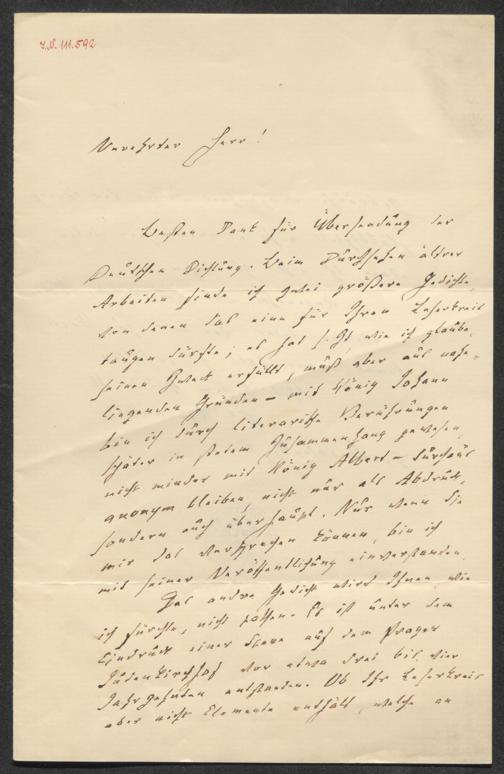 J.N. 111.592
Verehrter Herr!
Besten Dank für Übersendung der
Deutschen Dichtung. Beim Durchsehen älterer
Arbeiten finde ich zwei größere Gedichte
von denen das eine für Ihren Leserkreis
taugen dürfte; es hat s. Zt wie ich glaube
seinen Zweck erfüllt, muß aber aus nahe-
liegenden Gründen – mit König Johann
bin ich durch literarische Berührungen
später in stetem Zusammenhang gewesen,
nicht minder mit König Albert – durchaus
anonym bleiben, nicht nur als Abdruck,
sondern auch überhaupt. Nur wenn Sie
mir das versprechen können, bin ich
mit seiner Veröffentlichung einverstanden.
Das andre Gedicht wird Ihnen, wie
ich fürchte, nicht passen. Es ist unter dem
Eindruck einer Scene auf dem Prager
Judenkirchhof vor etwa drei bis vier
Jahrzehnten entstanden. Ob Ihr Leserkreis
aber nicht Elemente enthält, welche an